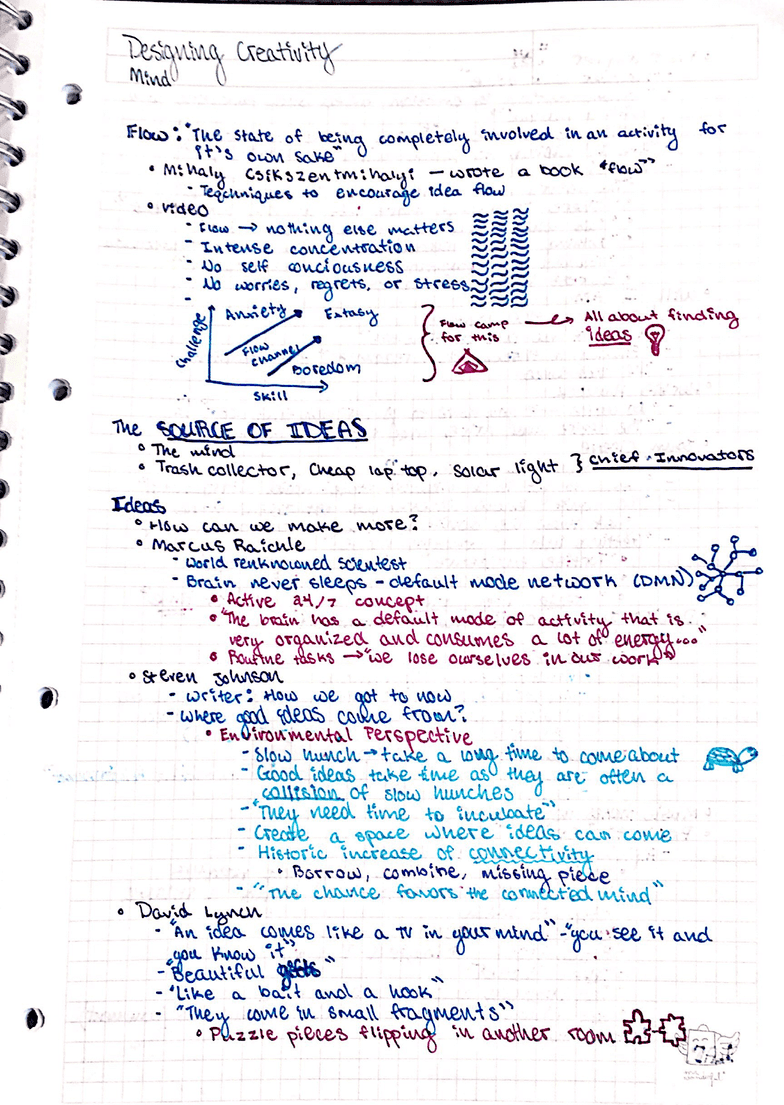 Designing Creativity
Mind
Flow: "The state of being completely involved in an activity for
it's own sake"
• Mihaly Csikszentmihalyi - wrote a book "flow"
- Teqchniques to encourage idea flow
• video
- Flow → nothing else matters
- Intense concentration
- No self conciousness
- No worries, regrets, or stress
-
Challenge
Anxiety
Extasy
Flow channel
Boredom
Skill
Flow camp
for this
→ All about finding
ideas
The SOURCE OF IDEAS
• The mind
• Trash collector, Cheap lap top, Solar light } chief Innovators
Ideas
• How can we make more?
• Marcus Raichle
- World renknowned scientest
- Brain never sleeps - default mode network (DMN)
• Active 24/7 concept
• "The brain has a default mode of activity that is
very organized and consumes a lot of energy..."
• Routine tasks → "we lose ourselves in our work"
• Steven Johnson
- writer: How we got to now
- Where good ideas come from?
• Environmental Perspective
- Slow hunch → take a long time to come about
- Good ideas take time as they are often a
collision of slow hunches
- "They need time to incubate"
- Create a space where ideas can come
- Historic increase of connectivity
• Borrow, combine, missing piece
- "The chance favors the connected mind"
• David Lynch
- "An idea comes like a TV in your mind" - "you see it and
you know it"
- "Beautiful "
- "Like a bait and a hook"
- "They come in small fragments"
• Puzzle pieces flipping in another room